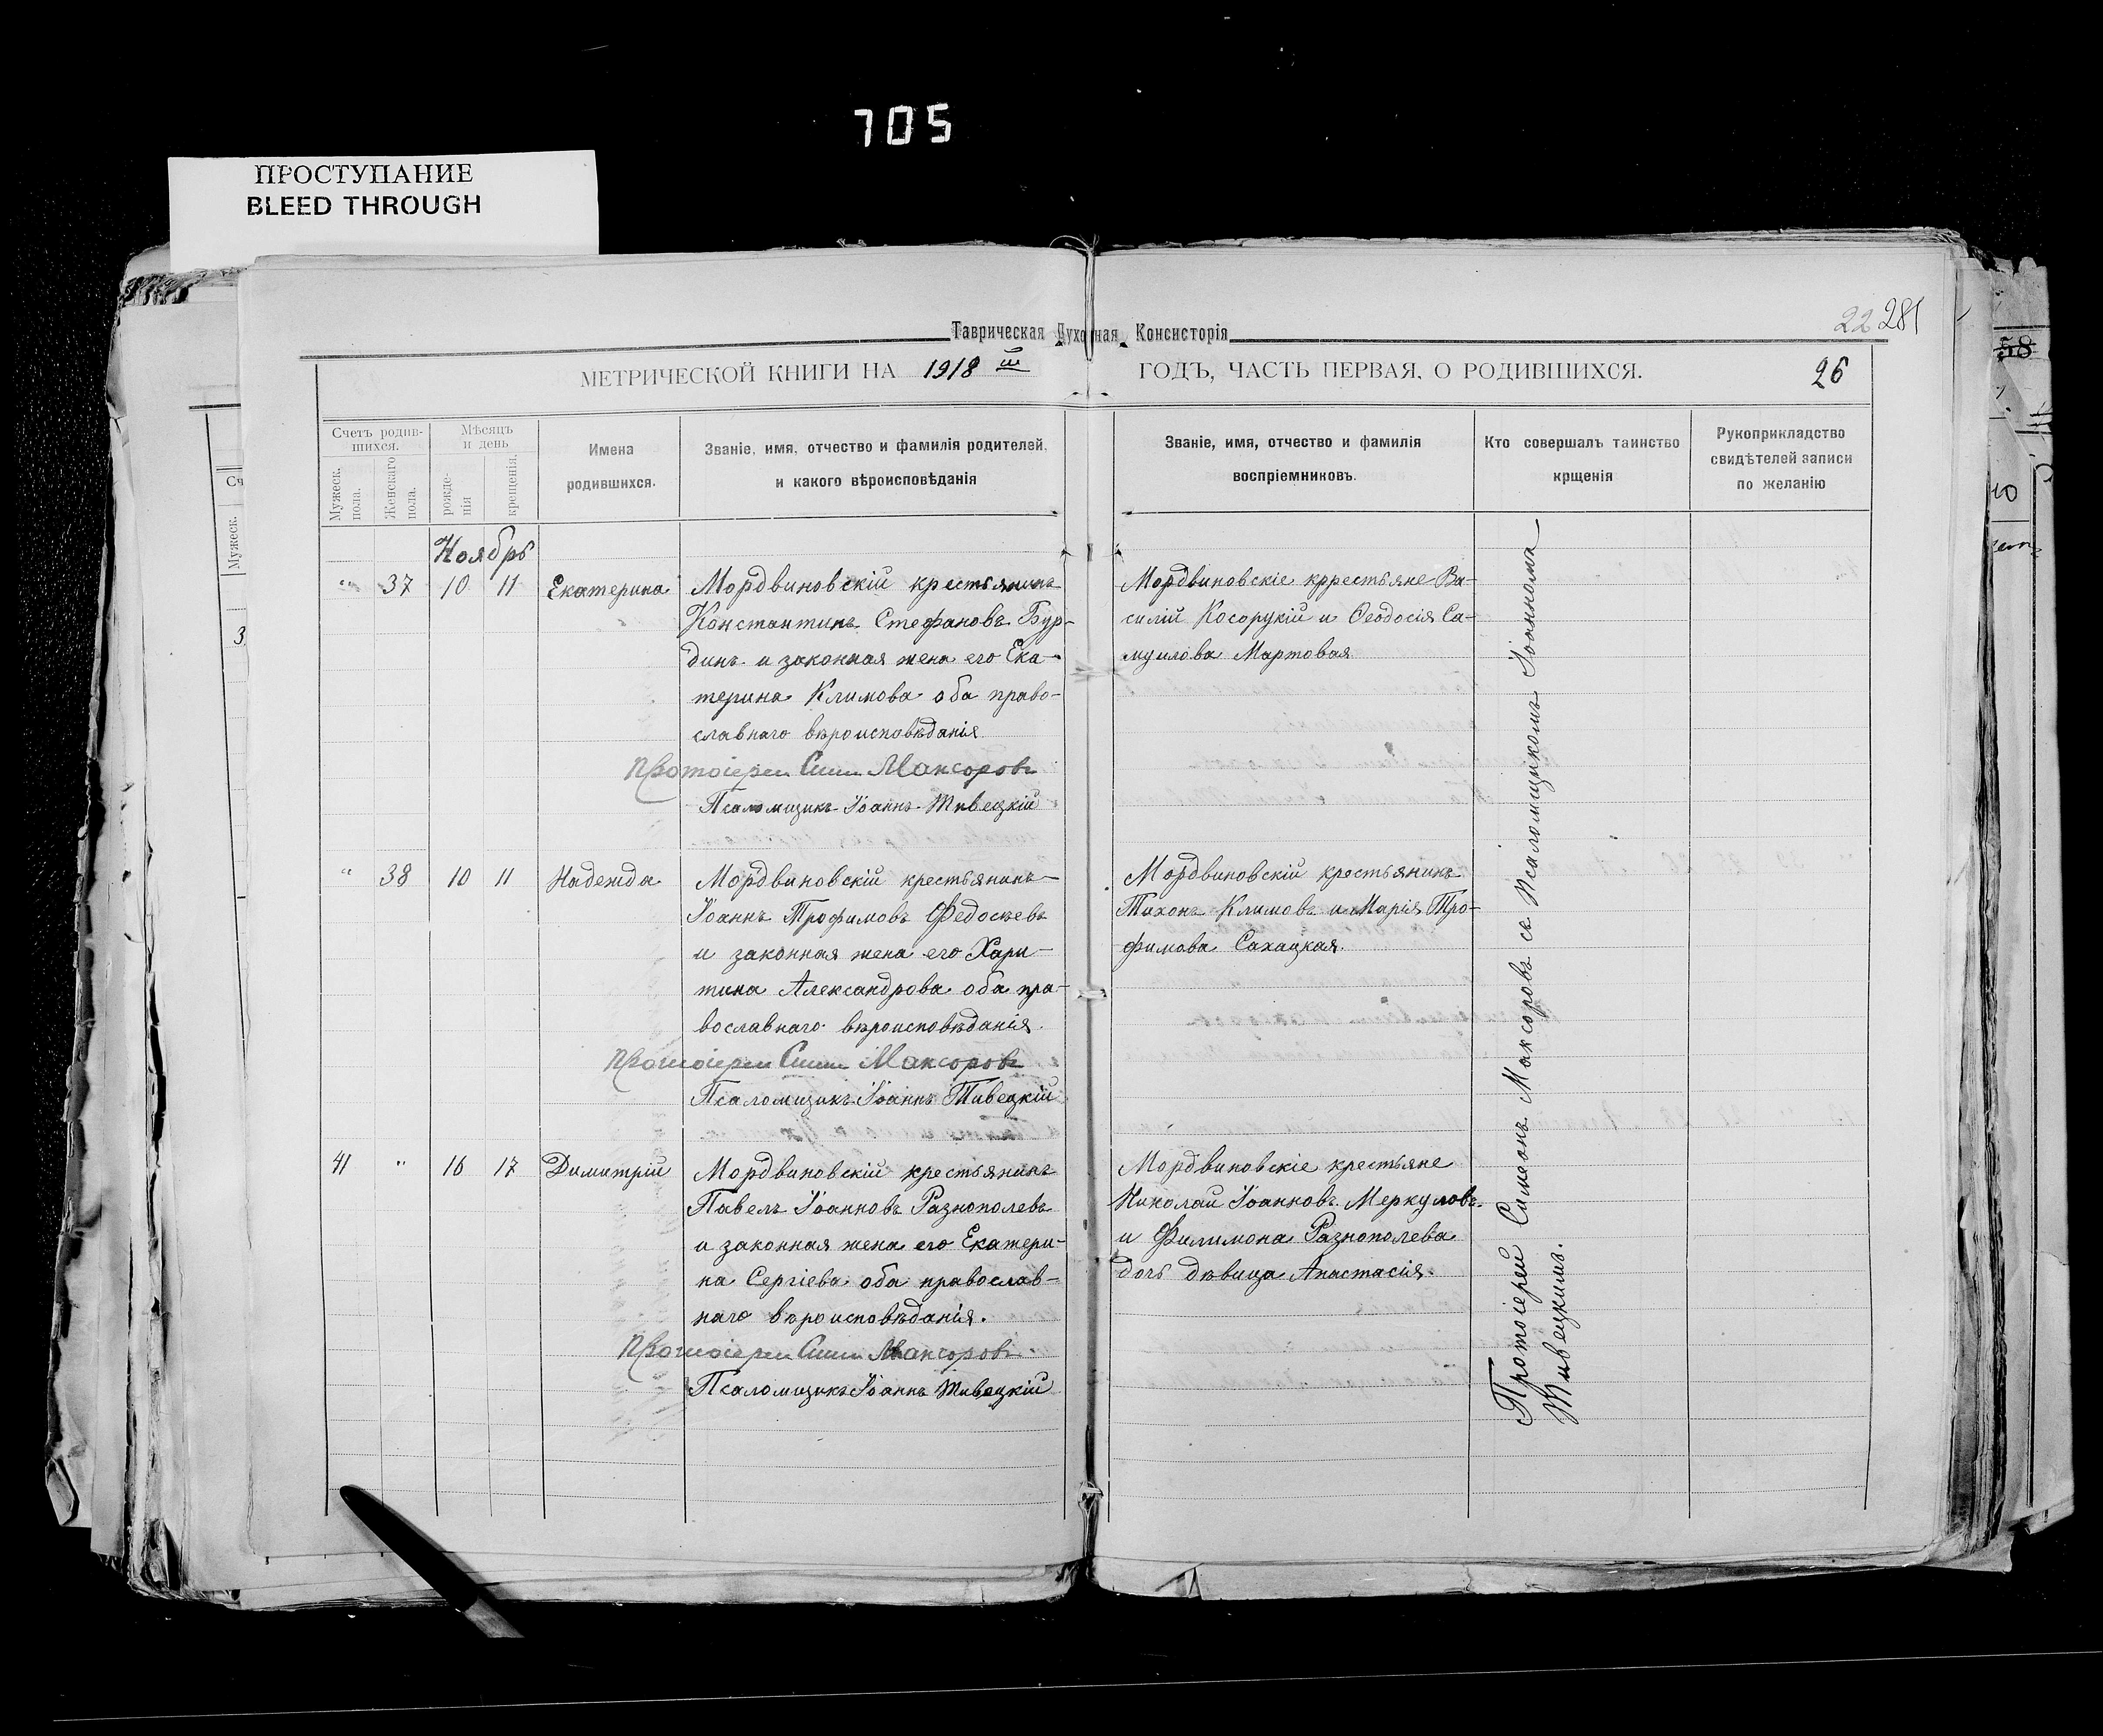 705
ПРОСТУПАНИЕ
BLEED THROUGH
22 281
Таврическая Духовная Консисторія
МЕТРИЧЕСКОЙ КНИГИ НА 1918 й ГОДЪ, ЧАСТЬ ПЕРВАЯ, О РОДИВШИХСЯ. 26
Счетъ родив-
шихся.
Мужеск.
пола.
Женскаго
пола.
Мѣсяцъ
и день
рожде-
нія
крещенія.
Имена
родившихся.
Званіе, имя, отчество и фамилія родителей,
и какого вѣроисповѣданія
Званіе, имя, отчество и фамилія
воспріемниковъ.
Кто совершалъ таинство
крщенія
Рукоприкладство
свидѣтелей записи
по желанію
Ноябрь
" 37 10 11 Екатерина
Мордвиновскій крестьянинъ
Константинъ Стефановъ Бур-
динъ и законная жена его Ека-
терина Климова оба право-
славнаго вѣроисповѣданія
Протоіерей Сим Максоровъ
Псаломщикъ Іоаннъ Тивецкій
Мордвиновскіе кррестьяне Ва-
силій Косорукій и Ѳеодосія Са-
муилова Мартовая
" 38 10 11 Надежда
Мордвиновскій крестьянинъ
Іоаннъ Трофимовъ Федосѣевъ
и законная жена его Хари-
тина Александрова оба пра-
вославнаго вѣроисповѣданія.
Протоіерей Сим Максоровъ
Псаломщикъ Іоаннъ Тивецкій
Мордвиновскій крестьянинъ
Тихонъ Климовъ и Марія Тро-
фимова Сахацкая.
41 " 16 17 Димитрій
Мордвиновскій крестьянинъ
Павелъ Іоанновъ Разнополевъ
и законная жена его Екатери-
на Сергіева оба православ-
наго вѣроисповѣданія.
Протоіерей Сим Максоровъ
Псаломщикъ Іоаннъ Тивецкій
Мордвиновскіе крестьяне
Николай Іоанновъ Меркуловъ
и Филимона Разнополева
дочь дѣвица Анастасія.
Протоіерей Симеонъ Максоровъ съ Псаломщикомъ Іоанномъ
Тивецкимъ.
Сч
Мужеск.
3
58